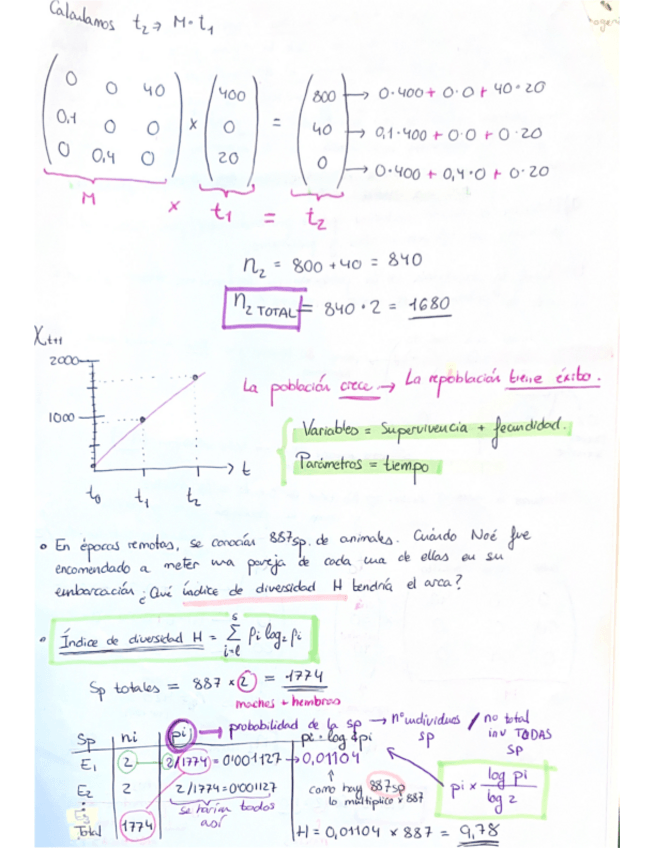 Calculamos t2 → M·t1
0 0 40 400 800 → 0·400 + 0·0 + 40·20
0,1 0 0 × 0 = 40 → 0,1·400 + 0·0 + 0·20
0 0,4 0 20 0 → 0·400 + 0,4·0 + 0·20
M × t1 = t2
n2 = 800 + 40 = 840
n2 TOTAL = 840 · 2 = 1680
Xt+1
2000
1000
t0 t1 t2 → t
La población crece → La repoblación tiene éxito.
Variables = Supervivencia + fecundidad.
Parámetros = tiempo
• En épocas remotas, se conocían 887 sp. de animales. Cuándo Noé fue
encomendado a meter una pareja de cada una de ellas en su
embarcación ¿Qué índice de diversidad H tendría el arca?
• Índice de diversidad H = s Σ i=1 Pi log2 Pi
Sp totales = 887 × 2 = 1774
machos + hembras
Sp ni pi → probabilidad de la sp → nº individuos sp / no total inv TODAS SP
pi · log2 pi
E1 2 2/1774 = 0'001127 → 0,01104
E2 2 2/1774 = 0'001127
se harían todos así
como hay 887sp lo multiplico × 887
pi × log pi / log 2
E3
Total 1774 H = 0,01104 × 887 = 9,78